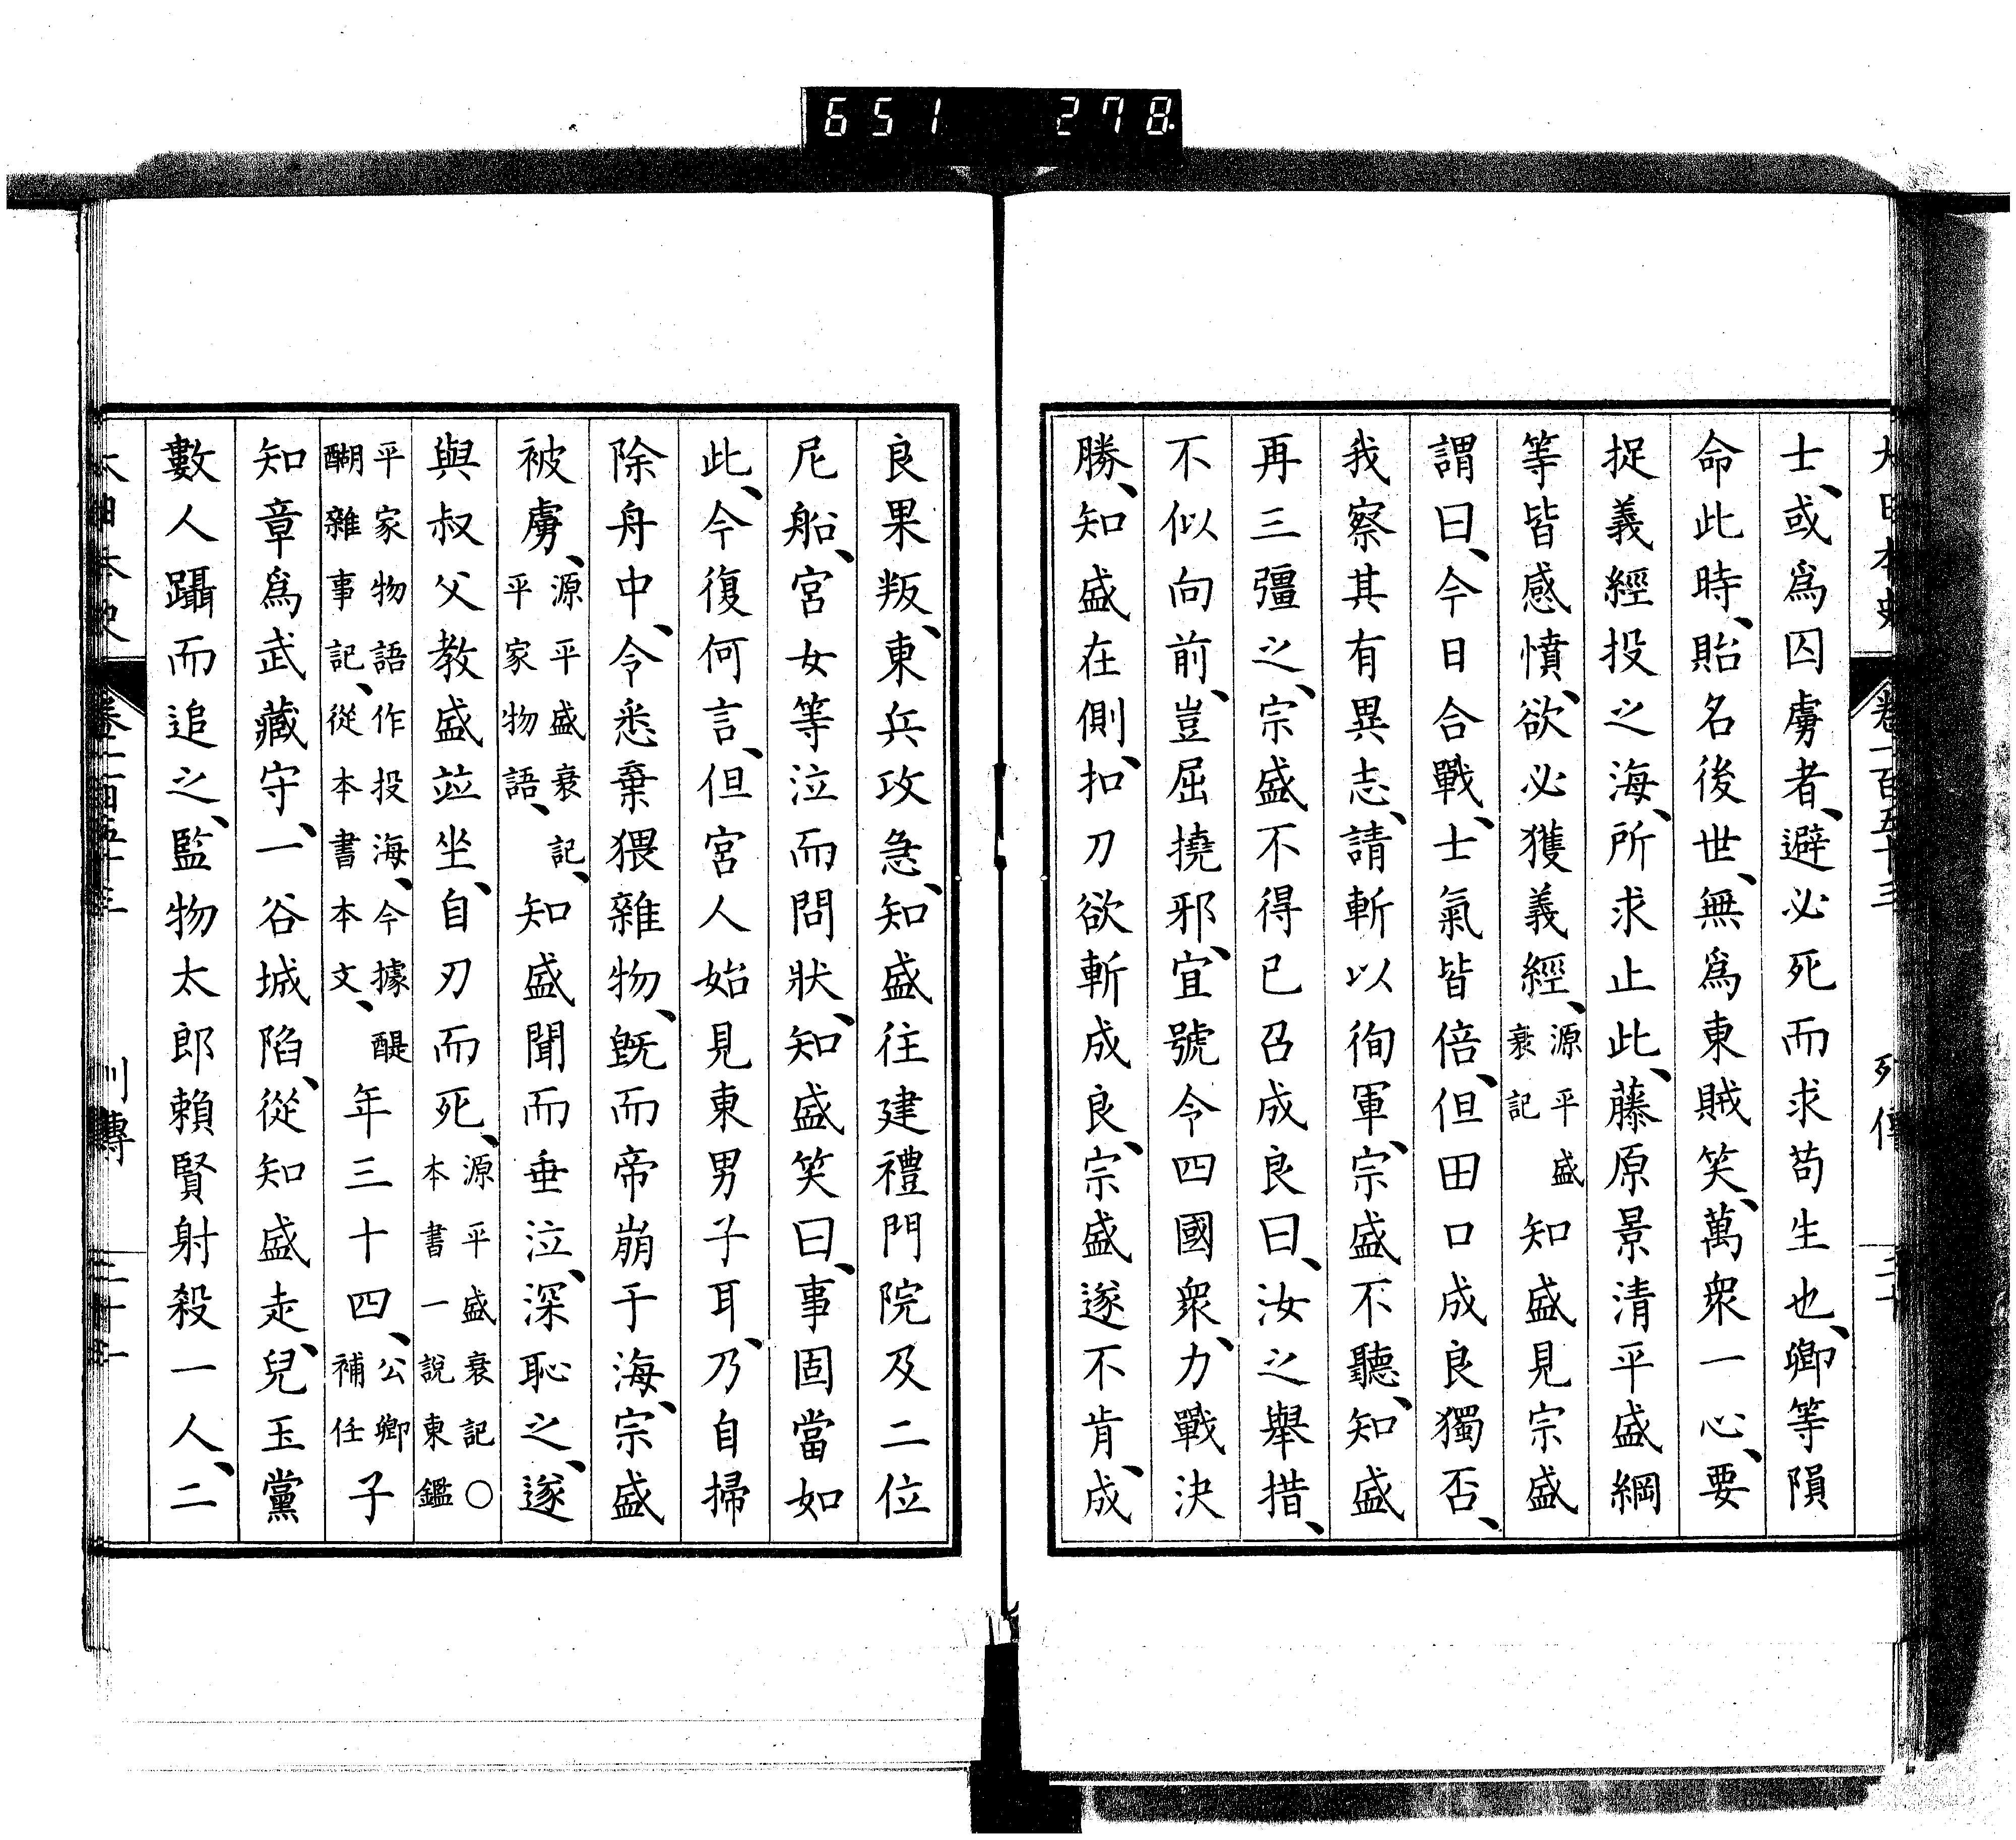 651 278
大日本史 卷一百五十三 列傳 二十
士、或爲囚虜者、避必死而求苟生也、卿等隕
命此時、貽名後世、無爲東賊笑、萬衆一心、要
捉義經投之海、所求止此、藤原景清平盛綱
等皆感憤、欲必獲義經、源平盛衰記知盛見宗盛
謂曰、今日合戰、士氣皆倍、但田口成良獨否、
我察其有異志、請斬以徇軍、宗盛不聽、知盛
再三彊之、宗盛不得已召成良曰、汝之舉措、
不似向前、豈屈撓邪、宜號令四國衆、力戰決
勝、知盛在側、扣刀欲斬成良、宗盛遂不肯、成
良果叛、東兵攻急、知盛往建禮門院及二位
尼船、宮女等泣而問狀、知盛笑曰、事固當如
此、今復何言、但宮人始見東男子耳、乃自掃
除舟中、令悉棄猥雜物、既而帝崩于海、宗盛
被虜、源平盛衰記、平家物語、知盛聞而垂泣、深恥之、遂
與叔父教盛竝坐、自刃而死、源平盛衰記○本書一說東鑑
平家物語作投海、今據醍醐雜事記、從本書本文、年三十四、公卿補任子
知章爲武藏守、一谷城陷、從知盛走、兒玉黨
數人躡而追之、監物太郎賴賢射殺一人、二
大日本史 列傳